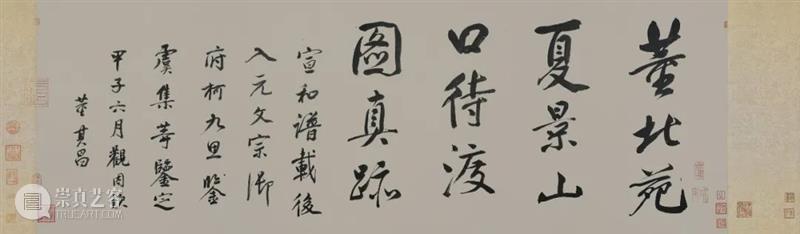 董北苑
夏景山
口待渡
圖真跡
宣和譜載後
入元文宗御
府柯九思鑒
虞集等鑒定
甲子六月觀因題
董其昌
崇真艺客